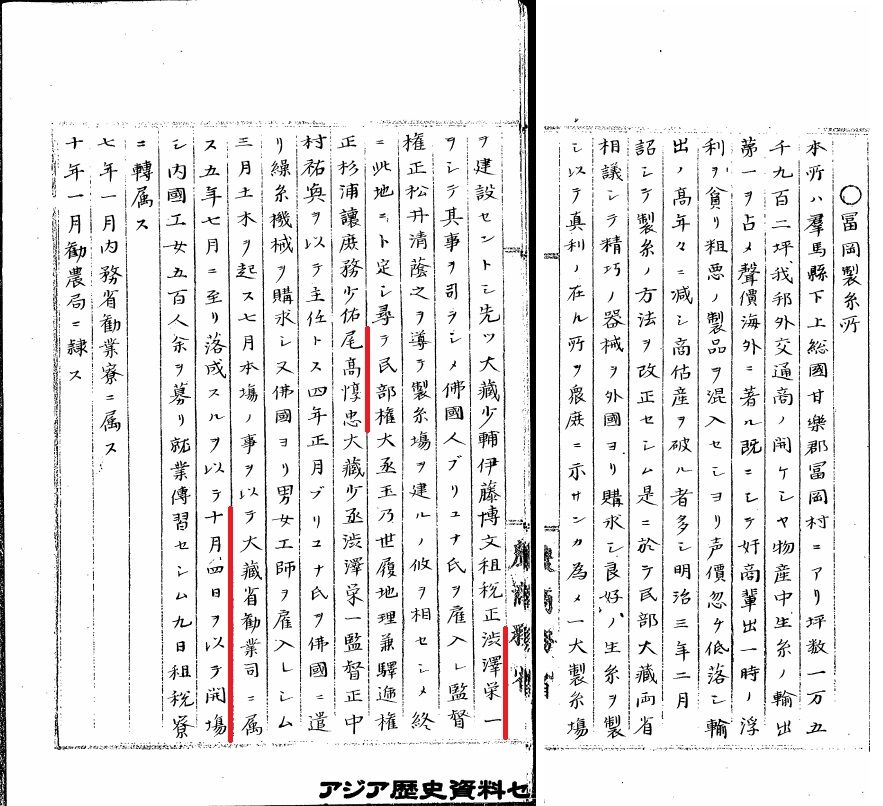 ○冨岡製糸所
本所ハ羣馬縣下上総國甘樂郡冨岡村ニアリ坪数一万五
千九百二坪我邦外交通商ノ開ケシヤ物産中生糸ノ輸出
第一ヲ占メ聲價海外ニ著ル既ニシテ奸商輩出一時ノ浮
利ヲ貪リ粗悪ノ製品ヲ混入セシヨリ声價忽チ低落シ輸
出ノ高年々ニ減シ商估産ヲ破ル者多シ明治三年二月
詔シテ製糸ノ方法ヲ改正セシム是ニ於テ民部大藏両省
相議シテ精巧ノ器械ヲ外國ヨリ購求シ良好ノ生糸ヲ製
シ以テ真利ノ在ル所ヲ衆庶ニ示サンカ為メ一大製糸場
ヲ建設セントシ先ツ大藏少輔伊藤博文租税正渋澤栄一
ヲシテ其事ヲ司ラシメ佛國人ブリユナ氏ヲ雇入レ監督
権正松井清蔭之ヲ導テ製糸塲ヲ建ルノ攸ヲ相セシメ終
ニ此地ニト定シ尋テ民部権大丞玉乃世履地理兼驛逓権
正杉浦讓庶務少佑尾高惇忠大藏少丞渋澤栄一監督正中
村祐興ヲ以テ主任トス四年正月ブリユナ氏ヲ佛國ニ遣
リ繰糸機械ヲ購求シ又佛國ヨリ男女工師ヲ雇入レシム
三月土木ヲ起ス七月本塲ノ事ヲ以テ大藏省勧業司ニ属
ス五年七月ニ至リ落成スルヲ以テ十月四日ヲ以テ開塲
シ内國工女五百人余ヲ募リ就業傳習セシム九日租税寮
ニ轉属ス
七年一月内務省勧業寮ニ属ス
十年一月勧農局ニ隷ス
アジア歴史資料セ